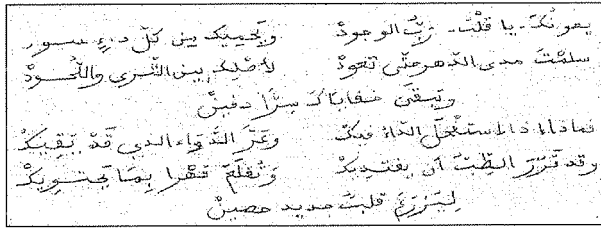 يصونكَ - يا قلبُ - ربُّ الوجودْ ويحميك من كلّ داءٍ
سلمتَ مدى الدّهر حتّى تعودْ لأصلك بين الثّرى واللّحودْ
وتبقى خفاياكَ سرًّا دفينْ
فماذا إذا استفحل الدّاءُ فيكْ وعزّ الدّواء الذي قدْ يقيكْ
وقد قرّر الطّبّ أن يفتديكْ وتُقلعَ قهرًا بما يحتويكْ
ليُزرعَ قلبٌ جديد حصينْ